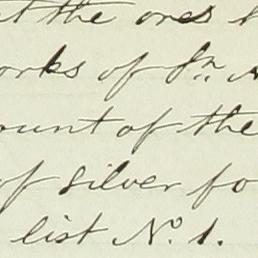 at the ores
orks of Jn.
ount of the
of silver fo
list No. 1.